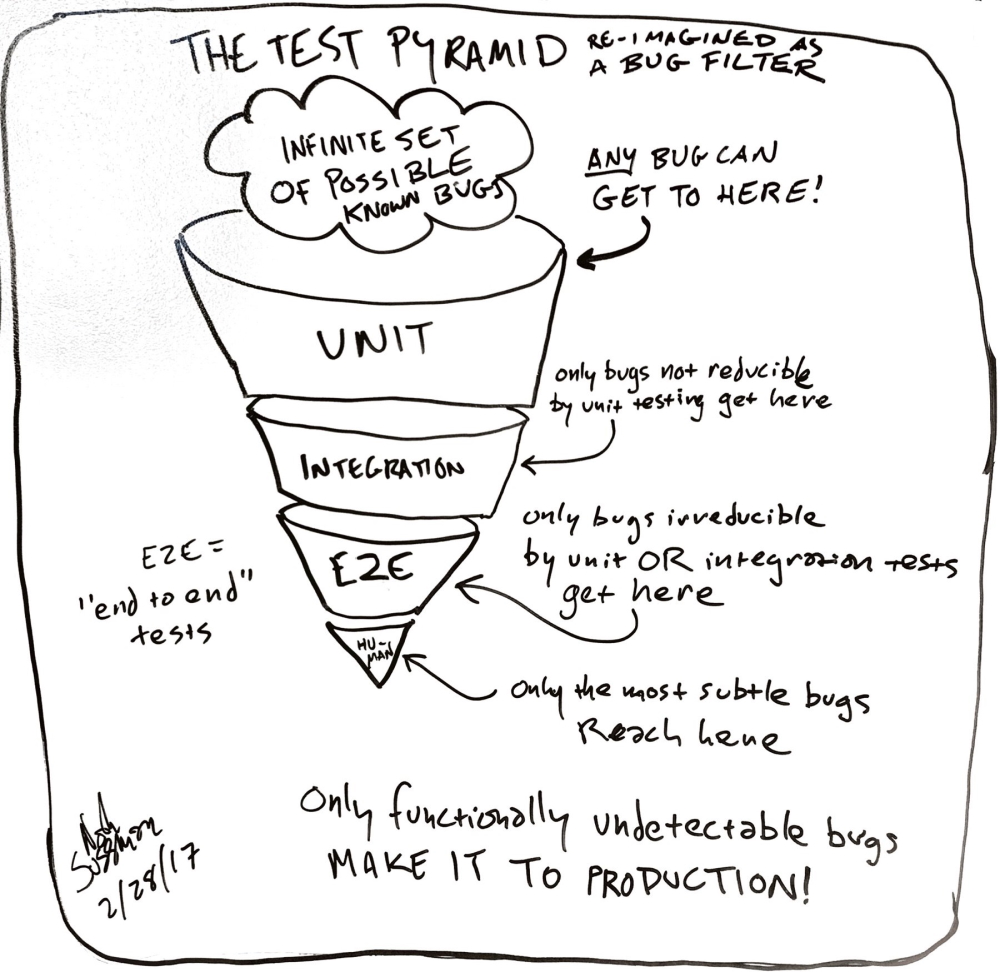 THE TEST PYRAMID RE-IMAGINED AS
A BUG FILTER
INFINITE SET
OF POSSIBLE
KNOWN BUGS
ANY BUG CAN
GET TO HERE!
UNIT
only bugs not reducible
by unit testing get here
INTEGRATION
only bugs irreducible
by unit OR integration tests
get here
E2E =
"end to end"
tests
E2E
HU-
MAN
Only the most subtle bugs
Reach here
Only functionally undetectable bugs
MAKE IT TO PRODUCTION!
Sussman
2/28/17